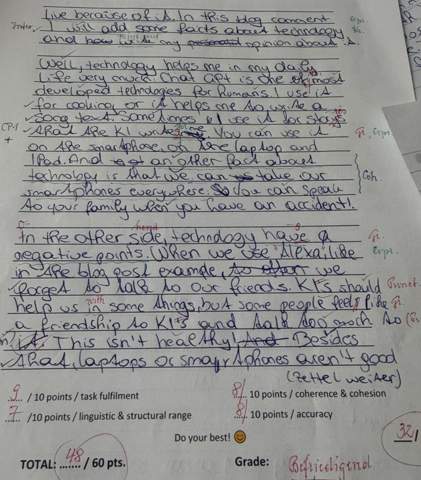 live because of it. In this blog comment
I will add some facts about technology
and my opinion about it.
Well, technology helps me in my daily
life very much. Chat Gpt is one of most
developed technologies for humans. I use it
for cooking or it helps me to write a
song text. Sometimes I use it for storys
that the KI write. You can use it
on the smartphone, on the laptop and
IPad. And an other fact about
technology is that we can take our
smartphones everywhere. You can speak
to your family when you have an accident!
In the other side, technology have
negative points. When we use "Alexa", like
in the blog post example, we
forget to talk to our friends. KI's should
help us in some things, but some people feel like
a friendship to KI's and talk too much to
it. This isn't healthy! Besides
that, laptops or smartphones aren't good
(Zettel weiter)
9 / 10 points / task fulfilment
8 / 10 points / coherence & cohesion
7 / 10 points / linguistic & structural range
8 / 10 points / accuracy
Do your best!
32 /
TOTAL: 48 / 60 pts.
Grade: Befriedigend